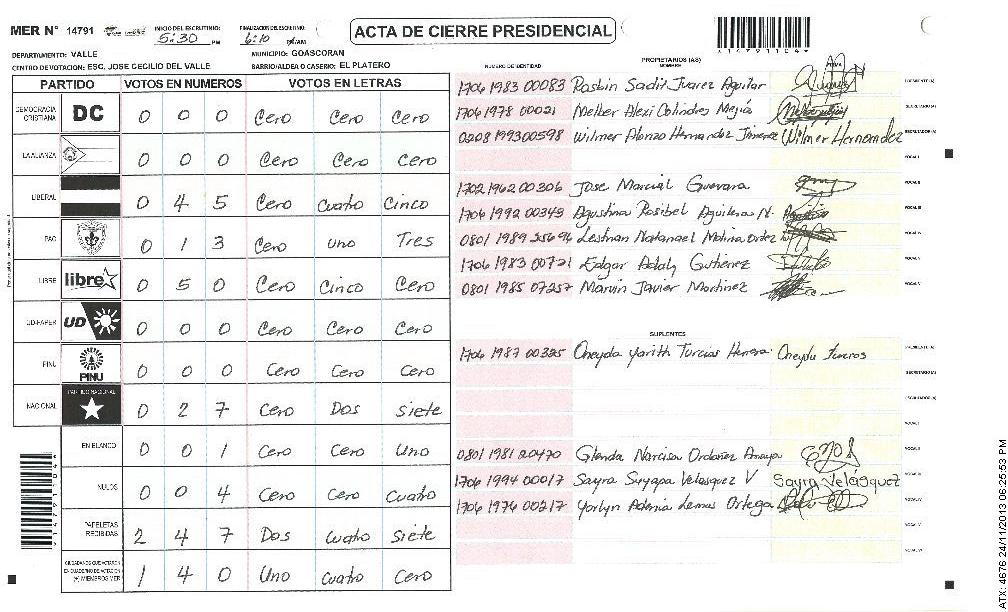 MER N° 14791 INICIO DEL ESCRUTINIO: 5:30 PM FINALIZACION DEL ESCRUTINIO: 6:10 PM/AM
ACTA DE CIERRE PRESIDENCIAL
DEPARTAMENTO: VALLE MUNICIPIO: GOASCORAN
CENTRO DE VOTACION: ESC. JOSE CECILIO DEL VALLE BARRIO/ALDEA O CASERIO: EL PLATERO
PARTIDO VOTOS EN NUMEROS VOTOS EN LETRAS
DEMOCRACIA CRISTIANA DC 0 0 0 Cero Cero Cero
LA ALIANZA 0 0 0 Cero Cero Cero
LIBERAL 0 4 5 Cero Cuatro Cinco
PAC 0 1 3 Cero uno Tres
LIBRE libre 0 5 0 Cero Cinco Cero
UD-FAPER UD 0 0 0 Cero Cero Cero
PINU PINU 0 0 0 Cero Cero Cero
NACIONAL PARTIDO NACIONAL 0 2 7 Cero Dos siete
EN BLANCO 0 0 1 Cero Cero Uno
NULOS 0 0 4 Cero Cero Cuatro
PAPELETAS RECIBIDAS 2 4 7 Dos Cuatro Siete
CIUDADANOS QUE VOTARON EN CUADERNO DE VOTACION (+) MIEMBROS MER 1 4 0 Uno cuatro Cero
NUMERO DE IDENTIDAD PROPIETARIOS (AS) NOMBRE FIRMA
1706 1983 00083 Rosbin Sadit Juarez Aguilar PRESIDENTE (A)
1706 1978 00021 Melber Alexi Colindres Mejia SECRETARIO (A)
0208 1993 00598 Wilmer Alonzo Hernandez Jimenez Wilmer Hernandez ESCRUTADOR (A)
VOCAL I
1702 1962 00306 Jose Marcial Guevara VOCAL II
1706 1992 00343 Agustina Rosibel Aguilera N. VOCAL III
0801 1989 25694 Lestman Natanael Molina Ordez VOCAL IV
1706 1983 00721 Edgar Adaly Gutiérrez VOCAL V
0801 1985 07257 Marvin Javier Martinez VOCAL VI
SUPLENTES
1706 1987 00325 Oneyda Yarith Turcios Herrera Oneyda Turcios PRESIDENTE (A)
SECRETARIO (A)
ESCRUTADOR (A)
VOCAL I
0801 1981 20470 Glenda Narcisa Ordoñez Amaya VOCAL II
1706 1994 00017 Sayra Suyapa Velasquez V Sayra Velásquez VOCAL III
1706 1976 00217 Yorlyn Adenia Lemus Ortega VOCAL IV
VOCAL V
VOCAL VI
ATX: 4676 24/11/2013 06:25:53 PM